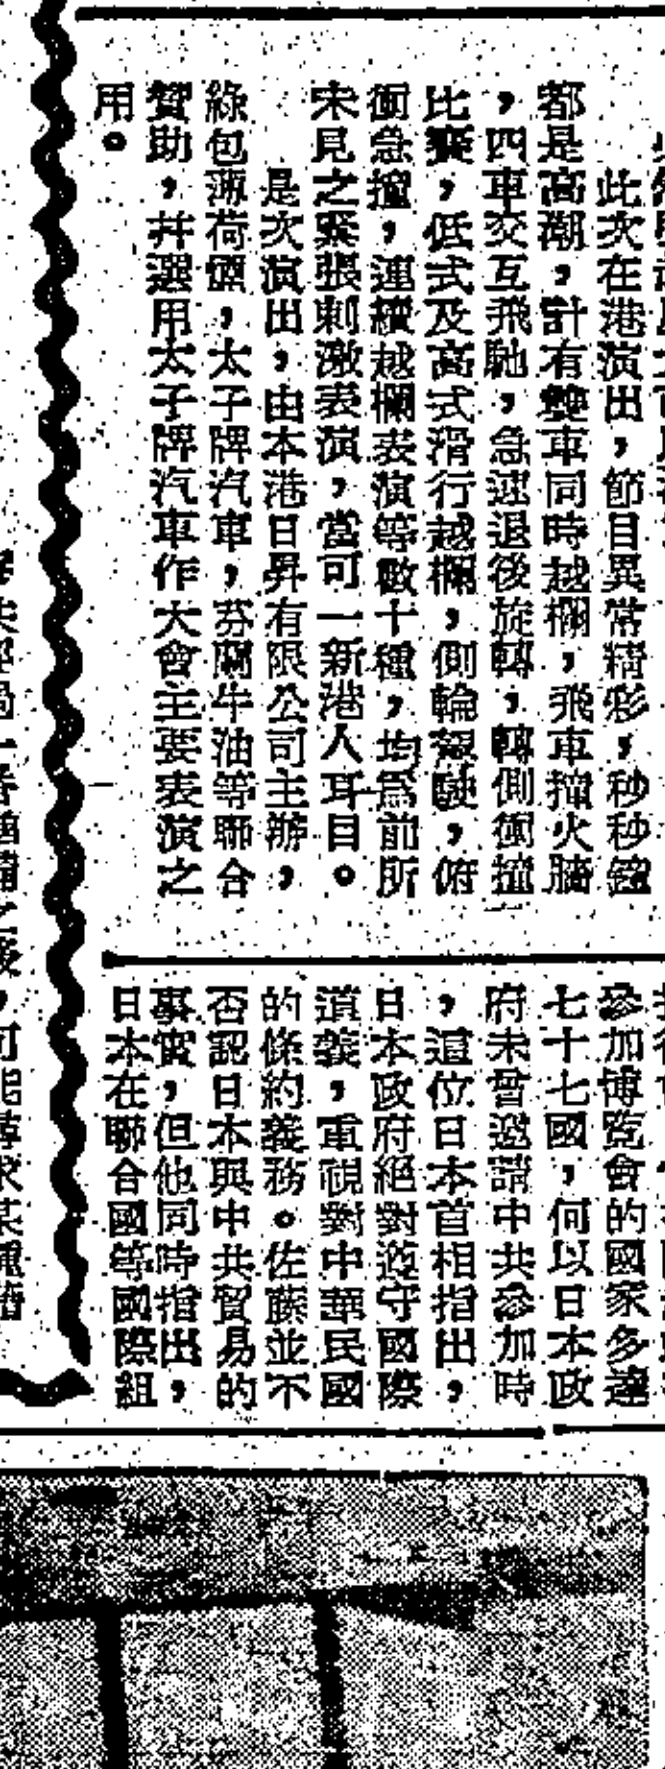 此次在港演出，節目異常精彩，秒秒鐘
都是高潮，計有雙車同時越欄，飛車撞火牆
，四車交互飛馳，急速退後旋轉，轉側衝撞
比賽，低式及高式滑行越欄，側輪駕駛，俯
衝急撞，連續越欄表演等數十種，均爲前所
未見之緊張刺激表演，當可一新港人耳目。
是次演出，由本港日昇有限公司主辦，
綠包薄荷煙，太子牌汽車，芬蘭牛油等聯合
贊助，幷選用太子牌汽車作大會主要表演之
用。
參加博覧會的國家多達
七十七國，何以日本政
府未曾邀請中共參加時
，這位日本首相指出，
日本政府絕對遵守國際
道義，重視對中華民國
的條約義務。佐藤並不
否認日本與中共貿易的
事實，但他同時指出，
日本在聯合國等國際組